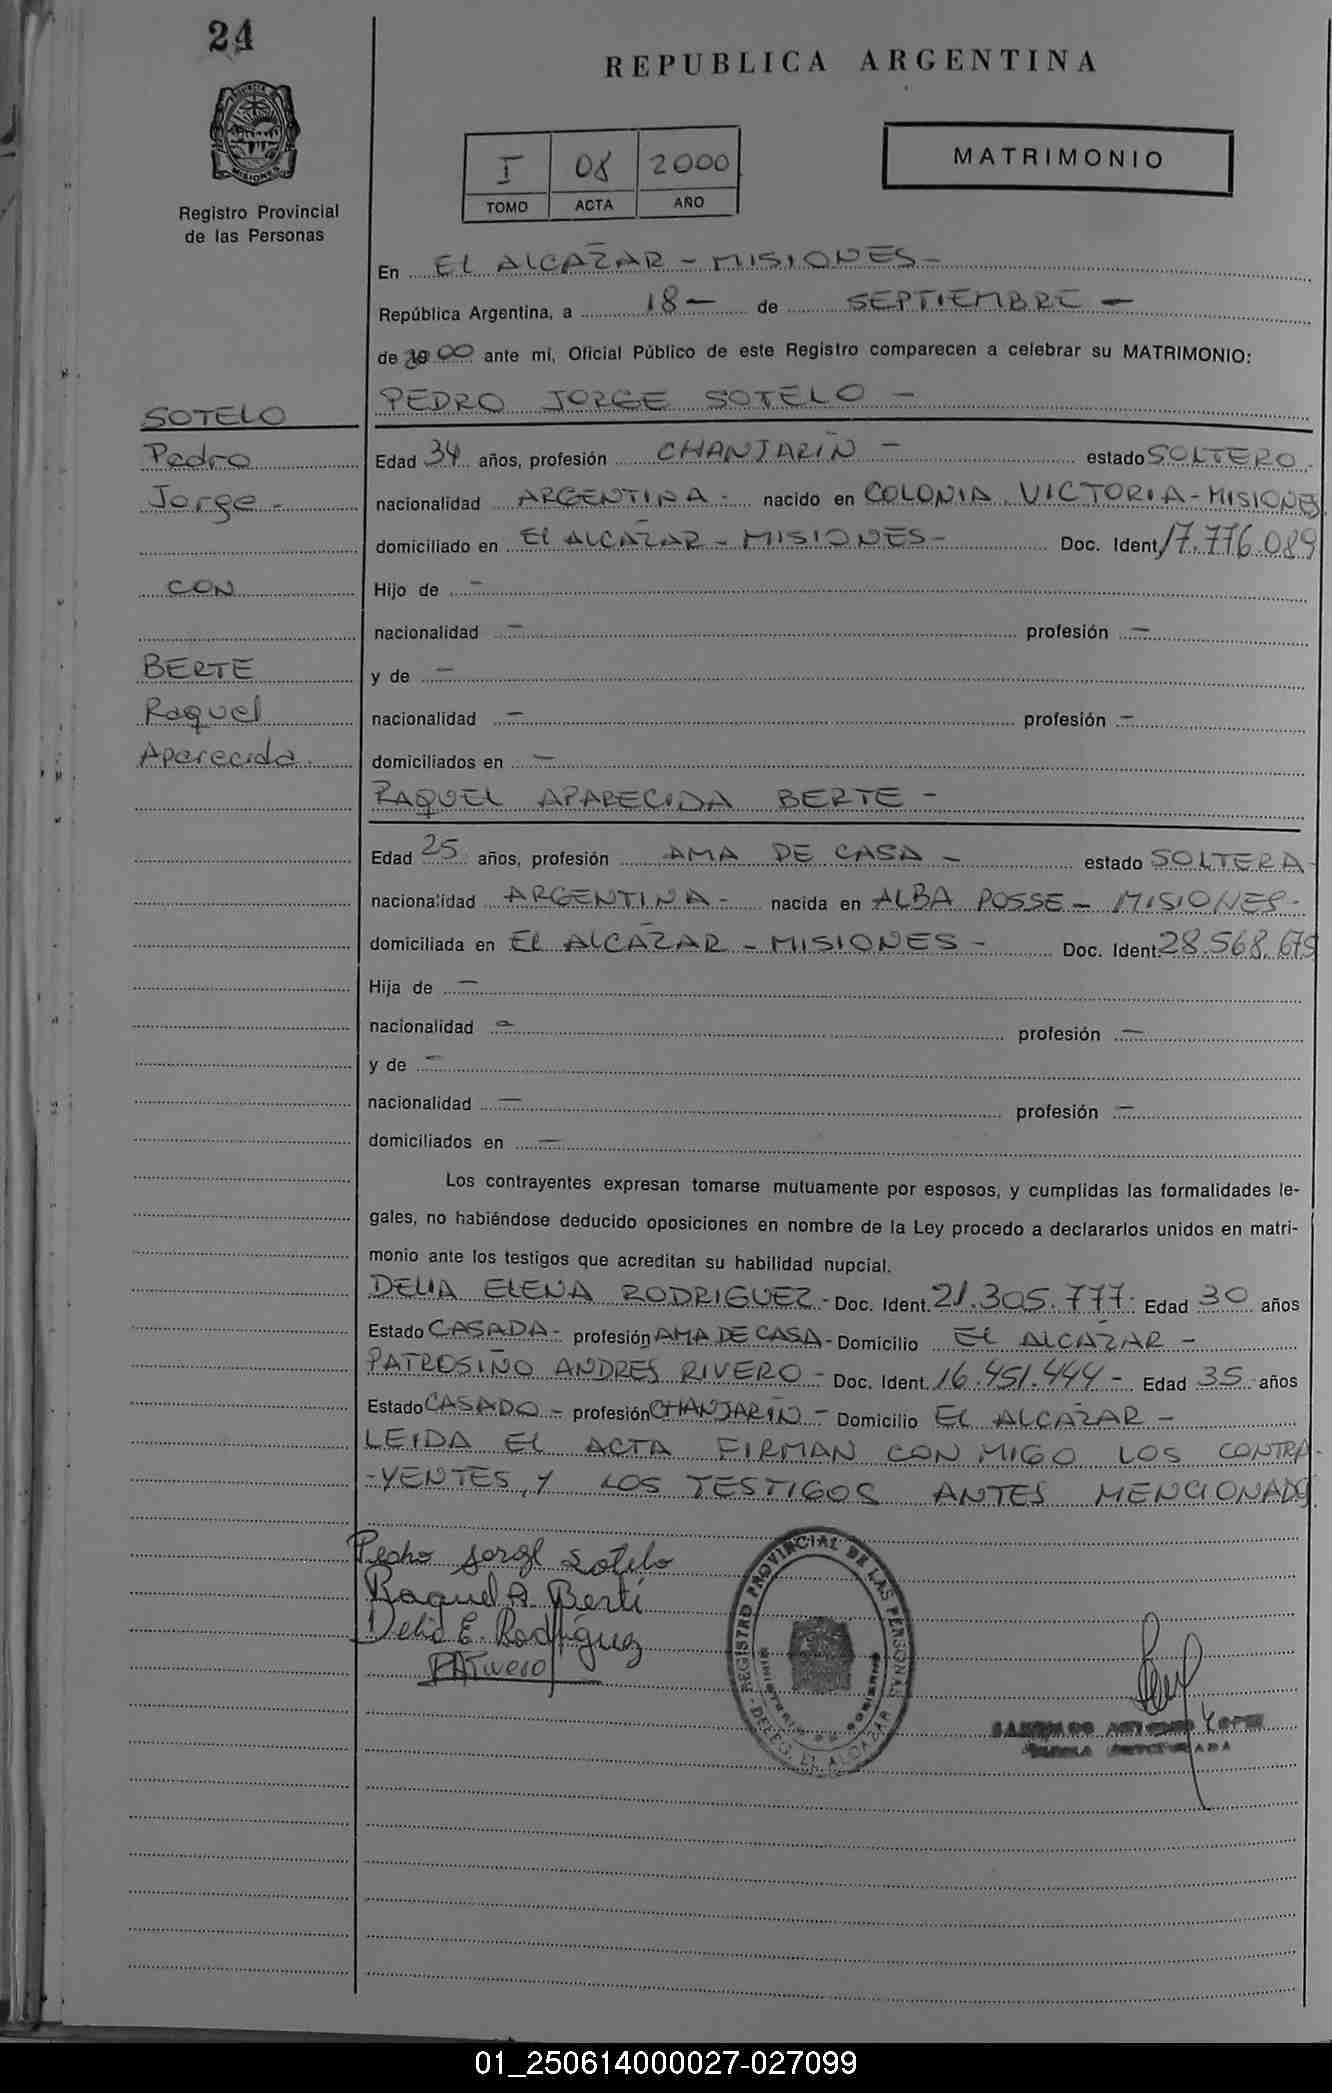 24
REPUBLICA ARGENTINA
MISIONES
Registro Provincial
de las Personas
I 08 2000
TOMO ACTA AÑO
MATRIMONIO
En EL ALCAZAR - MISIONES -
República Argentina, a 18 - de SEPTIEMBRE -
de 2000 ante mí, Oficial Público de este Registro comparecen a celebrar su MATRIMONIO:
SOTELO
Pedro
Jorge -
CON
BERTE
Raquel
Aparecida.
PEDRO JORGE SOTELO -
Edad 34 años, profesión CHANJARIN - estado SOLTERO.
nacionalidad ARGENTINA - nacido en COLONIA VICTORIA - MISIONES
domiciliado en EL ALCAZAR - MISIONES - Doc. Ident. 17.776.089
Hijo de -
nacionalidad - profesión -
y de -
nacionalidad - profesión -
domiciliados en -
RAQUEL APARECIDA BERTE -
Edad 25 años, profesión AMA DE CASA - estado SOLTERA -
nacionalidad ARGENTINA - nacida en ALBA POSSE - MISIONES -
domiciliada en EL ALCAZAR - MISIONES - Doc. Ident. 28.568.675
Hija de -
nacionalidad - profesión -
y de -
nacionalidad - profesión -
domiciliados en -
Los contrayentes expresan tomarse mutuamente por esposos, y cumplidas las formalidades le-
gales, no habiéndose deducido oposiciones en nombre de la Ley procedo a declararlos unidos en matri-
monio ante los testigos que acreditan su habilidad nupcial.
DELIA ELENA RODRIGUEZ - Doc. Ident. 21.305.777 - Edad 30 años
Estado CASADA - profesión AMA DE CASA - Domicilio EL ALCAZAR -
PATROSIÑO ANDRES RIVERO - Doc. Ident. 16.451.444 - Edad 35 - años
Estado CASADO - profesión CHANJARIN - Domicilio EL ALCAZAR -
LEIDA EL ACTA FIRMAN CON MIGO LOS CONTRA-
-YENTES, Y LOS TESTIGOS ANTES MENCIONADOS
Pedro Jorge Sotelo
Raquel A. Berti
Delia E. Rodríguez
REGISTRO PROVINCIAL DE LAS PERSONAS
MINISTERIO DE GOBIERNO
- DELEG. EL ALCAZAR -
01_250614000027-027099